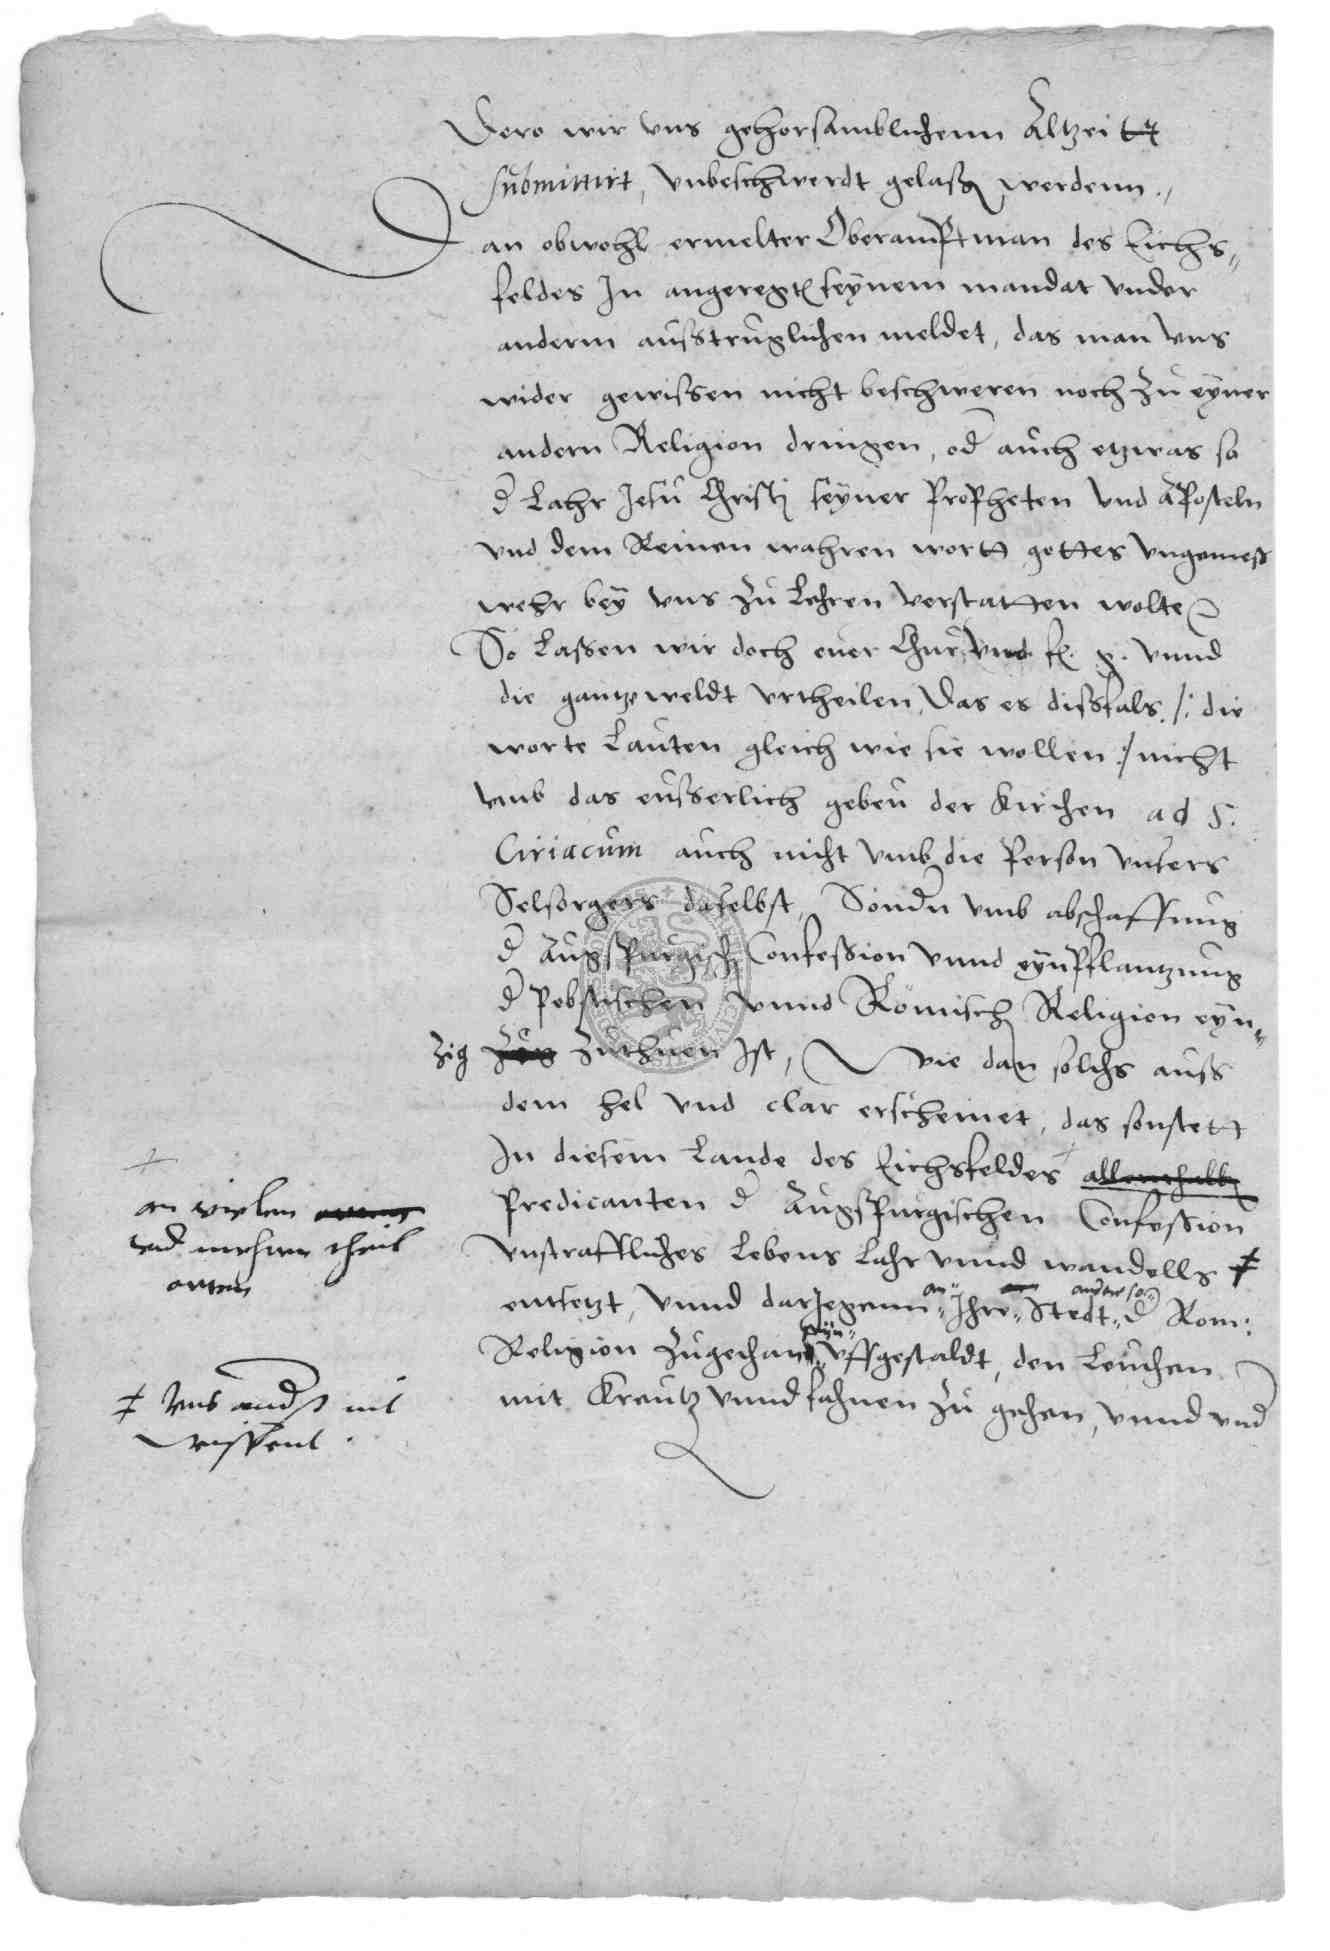 Dero wir uns gehorsamblichenn Altzeitt
submittirt, unbeschwerdt gelaßen werdenn.,
Dan obwohl ermelter Oberamptman des Eichs„
feldes In angeregten seÿnem mandat under
anderm außtruglichen meldet, das man uns
wider gewissen nicht beschweren noch zu eÿner
andern Religion dringen, oder auch etzwas so
der Lahr Jesu Christi seÿner Propheten und Aposteln
und dem Reinen wahren wortt gottes ungemeß
wehr beÿ uns zu Lehren verstatten wolte
So Lassen wir doch euer Chur und f. g. unnd
die gantze weldt urtheilen, Das es dißfals /: die
worte Lauten gleich wie sie wollen :/ nicht
umb das eußerlich gebeu der Kirchen ad S.
Ciriacum auch nicht umb die Person unsers
Selsorgers daselbst, Sondern umb abschaffung
der Augspurgischen Confession unnd eÿnpflantzung
der Pebstischen unnd Römischen Religion eÿn„
zig zuthuen Ist, Wie dan solchs auß
dem hel und clar erscheinet, das sonstett
In diesem Lande des Eichsfeldes allenthalben
an vielen
und mehrern theil
orten
Predicanten der Augspurgischen Confession
unstraffliches Lebens Lahr unnd wandells ≠
entsetzt, unnd darjegenn an Ihre Stedt andere so der Rom:
Religion zugethan eÿn uffgestaldt, den Leuthen
≠ uns anders nit
wissent.
mit Kreutz unnd fahnen zu gehen, unnd und